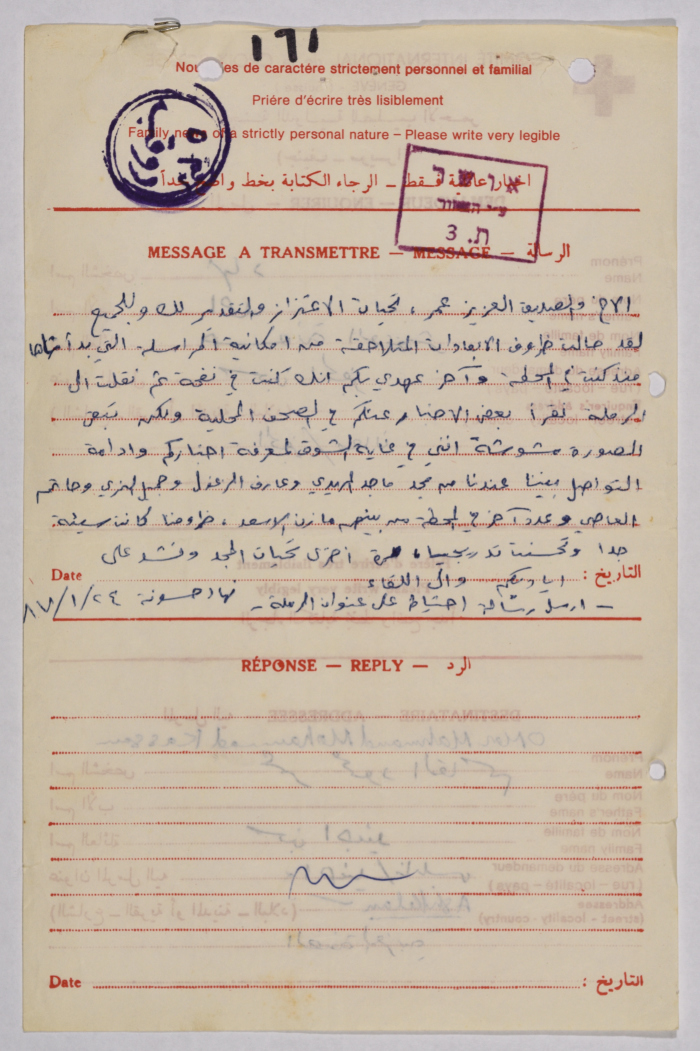 171
Nouvelles de caractère strictement personnel et familial
Prière d'écrire très lisiblement
Family news of a strictly personal nature – Please write very legible
اخبار عائلية فقط – الرجاء الكتابة بخط واضح جداً
ת. 3
MESSAGE A TRANSMETTRE — MESSAGE — الرسالة
الاخ والصديق العزيز عمر، تحيات الاعتزاز والتقدير لك وللجميع
لقد حالت ظروف الابعادات المتلاحقة من امكانية المراسلة التي بدأناها
منذ كنت في المحطة وآخر عهدي بكم انك كنت في نفحة ثم نقلت الى
الرملة نقرأ بعض الاخبار عنكم في الصحف المحلية ولكن تبقى
الصورة مشوشة انني في غاية الشوق لمعرفة اخباركم وادامة
التواصل بيننا عندنا من مجد ماجد وعارف وجبر وحاتم
وعدد آخر في المحطة من بينهم مازن الاسعد، ظروفنا كانت سيئة
جدا وتحسنت تدريجيا، مرة اخرى تحيات المجد ونشد على
Date اياديكم والى اللقاء التاريخ :
– ارسل رسالة احتياط على عنوان الرملة – نهاد حسونة ٨٧/١/٢٤
RÉPONSE — REPLY — الرد
Date التاريخ :